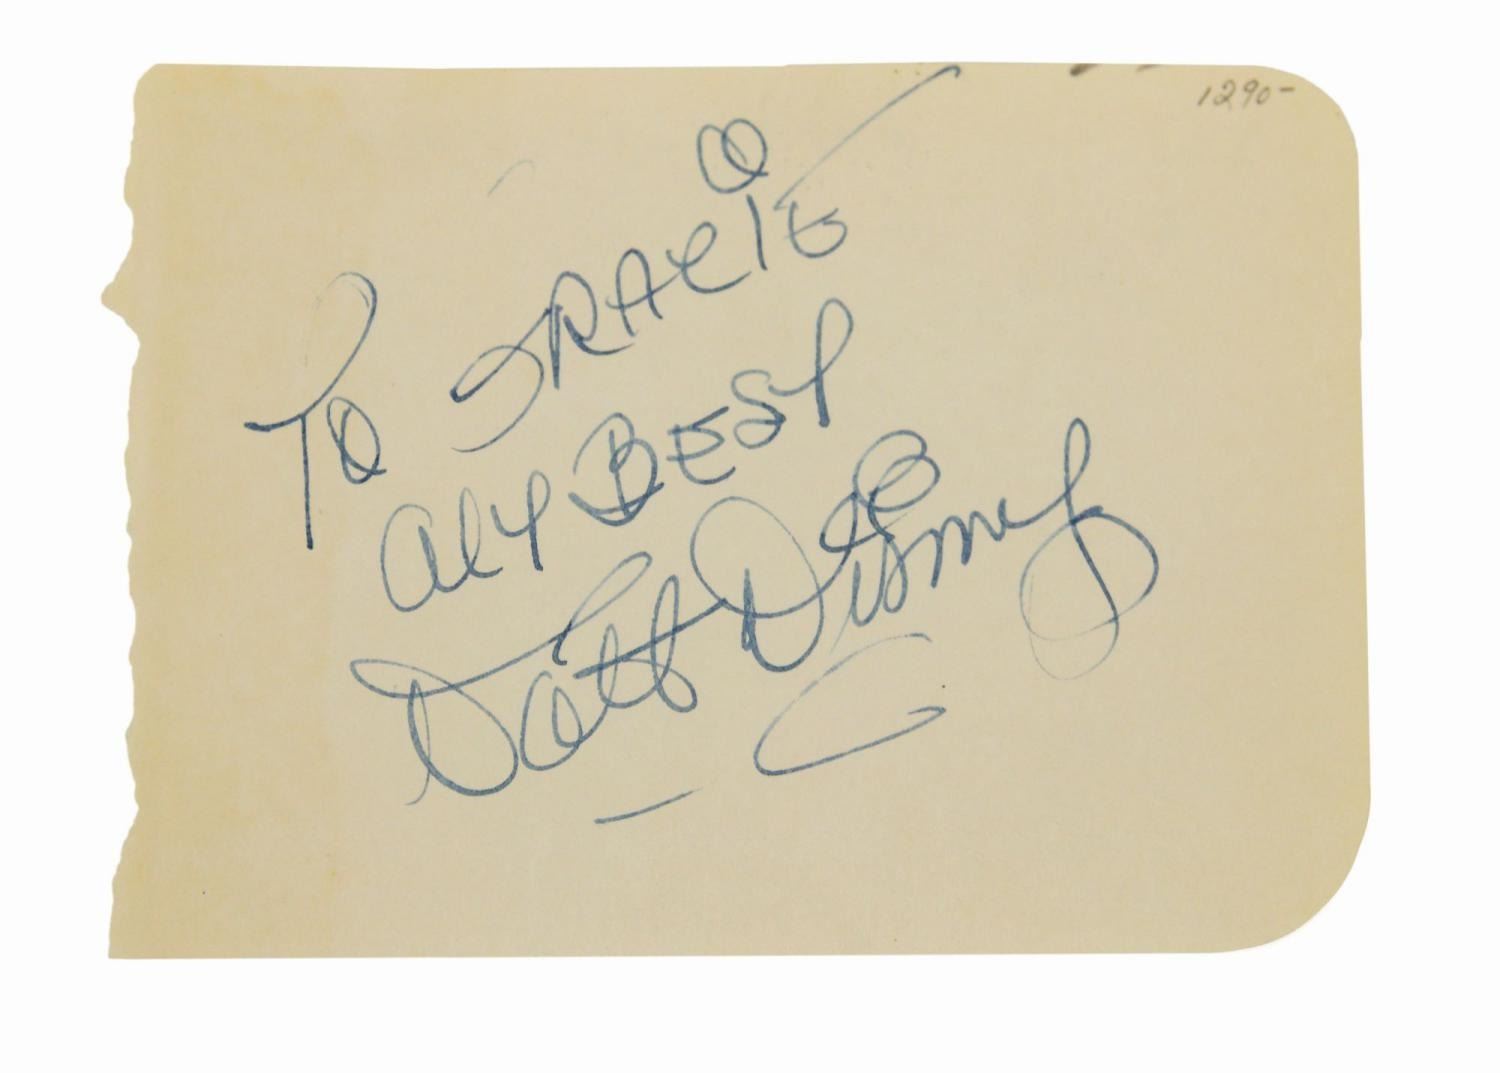 1290-
To GRACIE
All BEST
Walt Disney